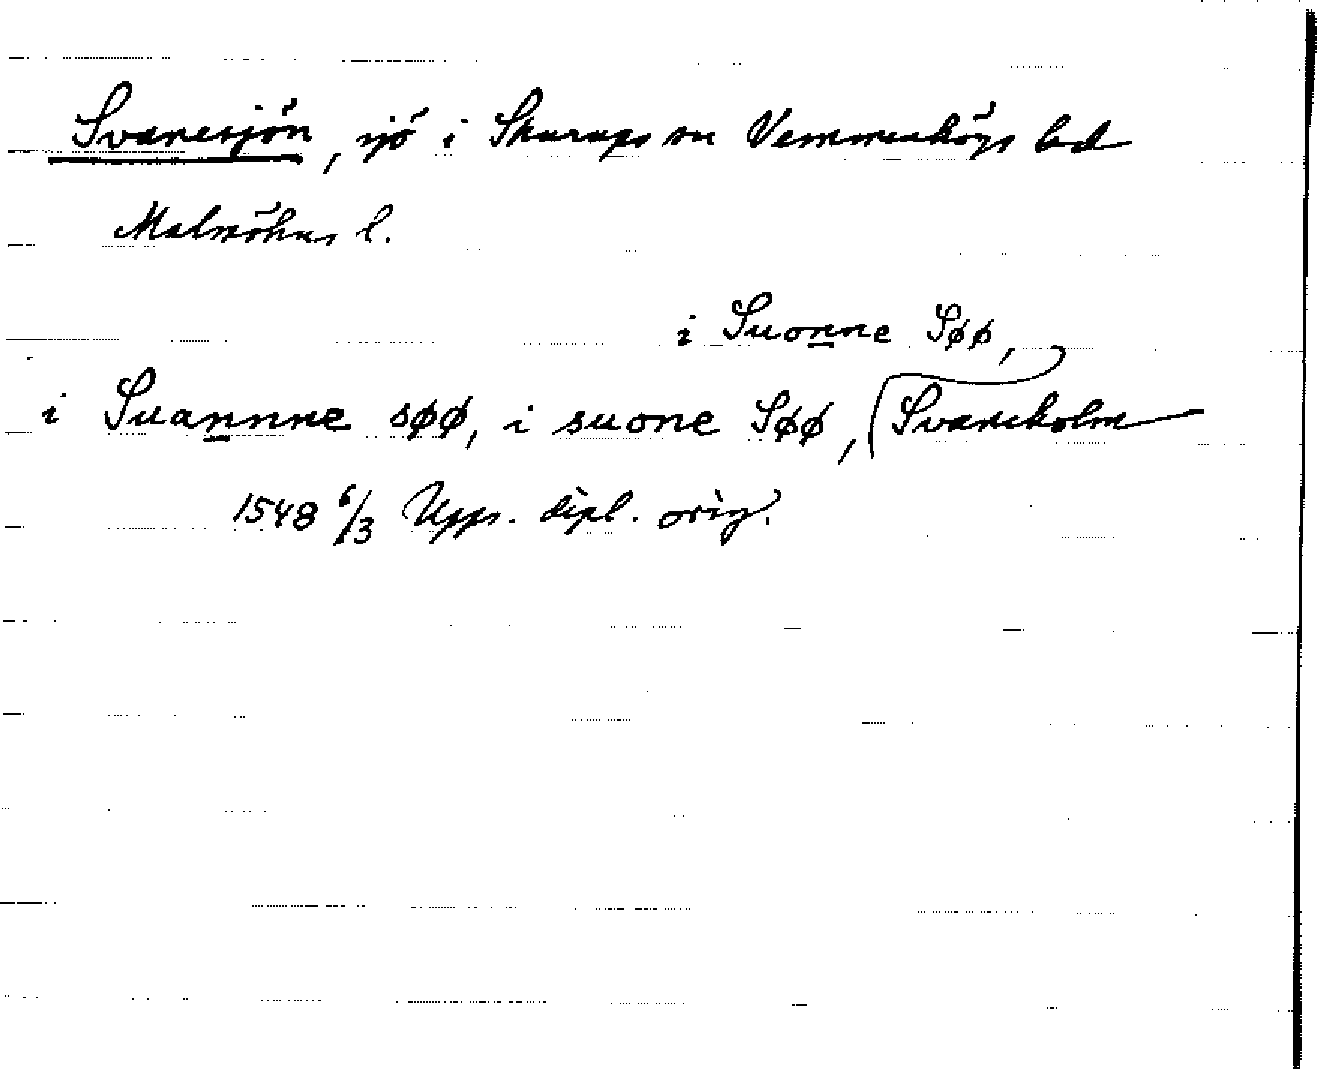 Svanesjön, sjö i Skurups sn Vemmenhögs hd
Malmöhus l.
i Suonne Søø,
i Suannne søø, i suone Søø, Svaneholm
1548 6/3 Upps. dipl. orig.